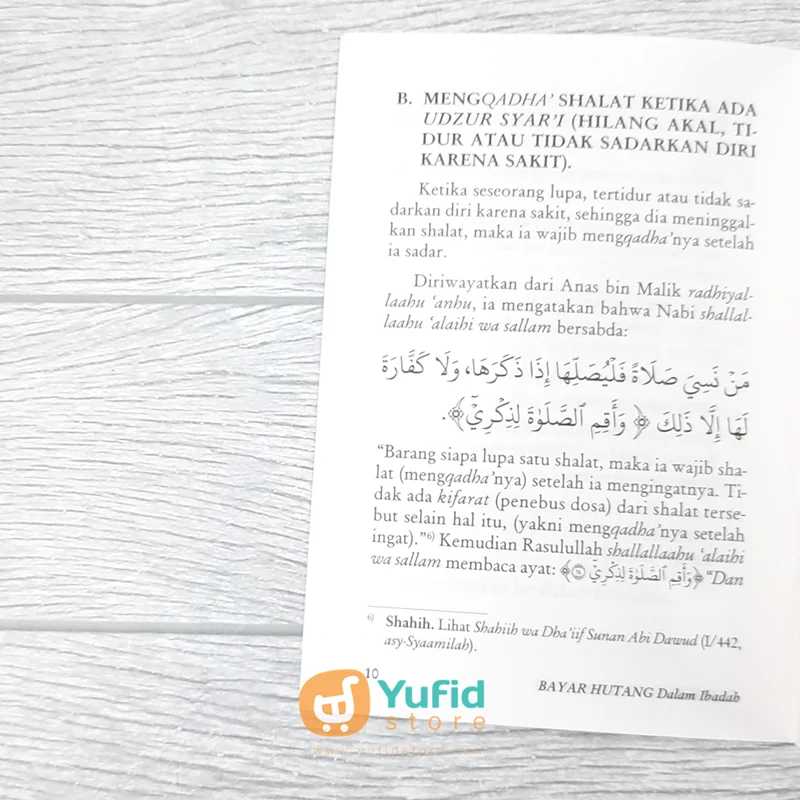 B. MENGQADHA' SHALAT KETIKA ADA
UDZUR SYAR'I (HILANG AKAL, TI-
DUR ATAU TIDAK SADARKAN DIRI
KARENA SAKIT).
Ketika seseorang lupa, tertidur atau tidak sa-
darkan diri karena sakit, sehingga dia meninggal-
kan shalat, maka ia wajib mengqadha'nya setelah
ia sadar.
Diriwayatkan dari Anas bin Malik radhiyal-
laahu 'anhu, ia mengatakan bahwa Nabi shallal-
laahu 'alaihi wa sallam bersabda:
مَنْ نَسِيَ صَلَاةً فَلْيُصَلِّهَا إِذَا ذَكَرَهَا، وَلَا كَفَّارَةَ
لَهَا إِلَّا ذَلِكَ ﴿ وَأَقِمِ ٱلصَّلَوٰةَ لِذِكْرِيٓ﴾.
"Barang siapa lupa satu shalat, maka ia wajib sha-
lat (mengqadha'nya) setelah ia mengingatnya. Ti-
dak ada kifarat (penebus dosa) dari shalat terse-
but selain hal itu, (yakni mengqadha'nya setelah
ingat)."6) Kemudian Rasulullah shallallaahu 'alaihi
wa sallam membaca ayat: ﴿وَأَقِمِ ٱلصَّلَوٰةَ لِذِكْرِيٓ ١٤﴾ "Dan
6) Shahih. Lihat Shahiih wa Dha'iif Sunan Abi Dawud (I/442,
asy-Syaamilah).
10
BAYAR HUTANG Dalam Ibadah
Yufid
store
www.yufidstore.com